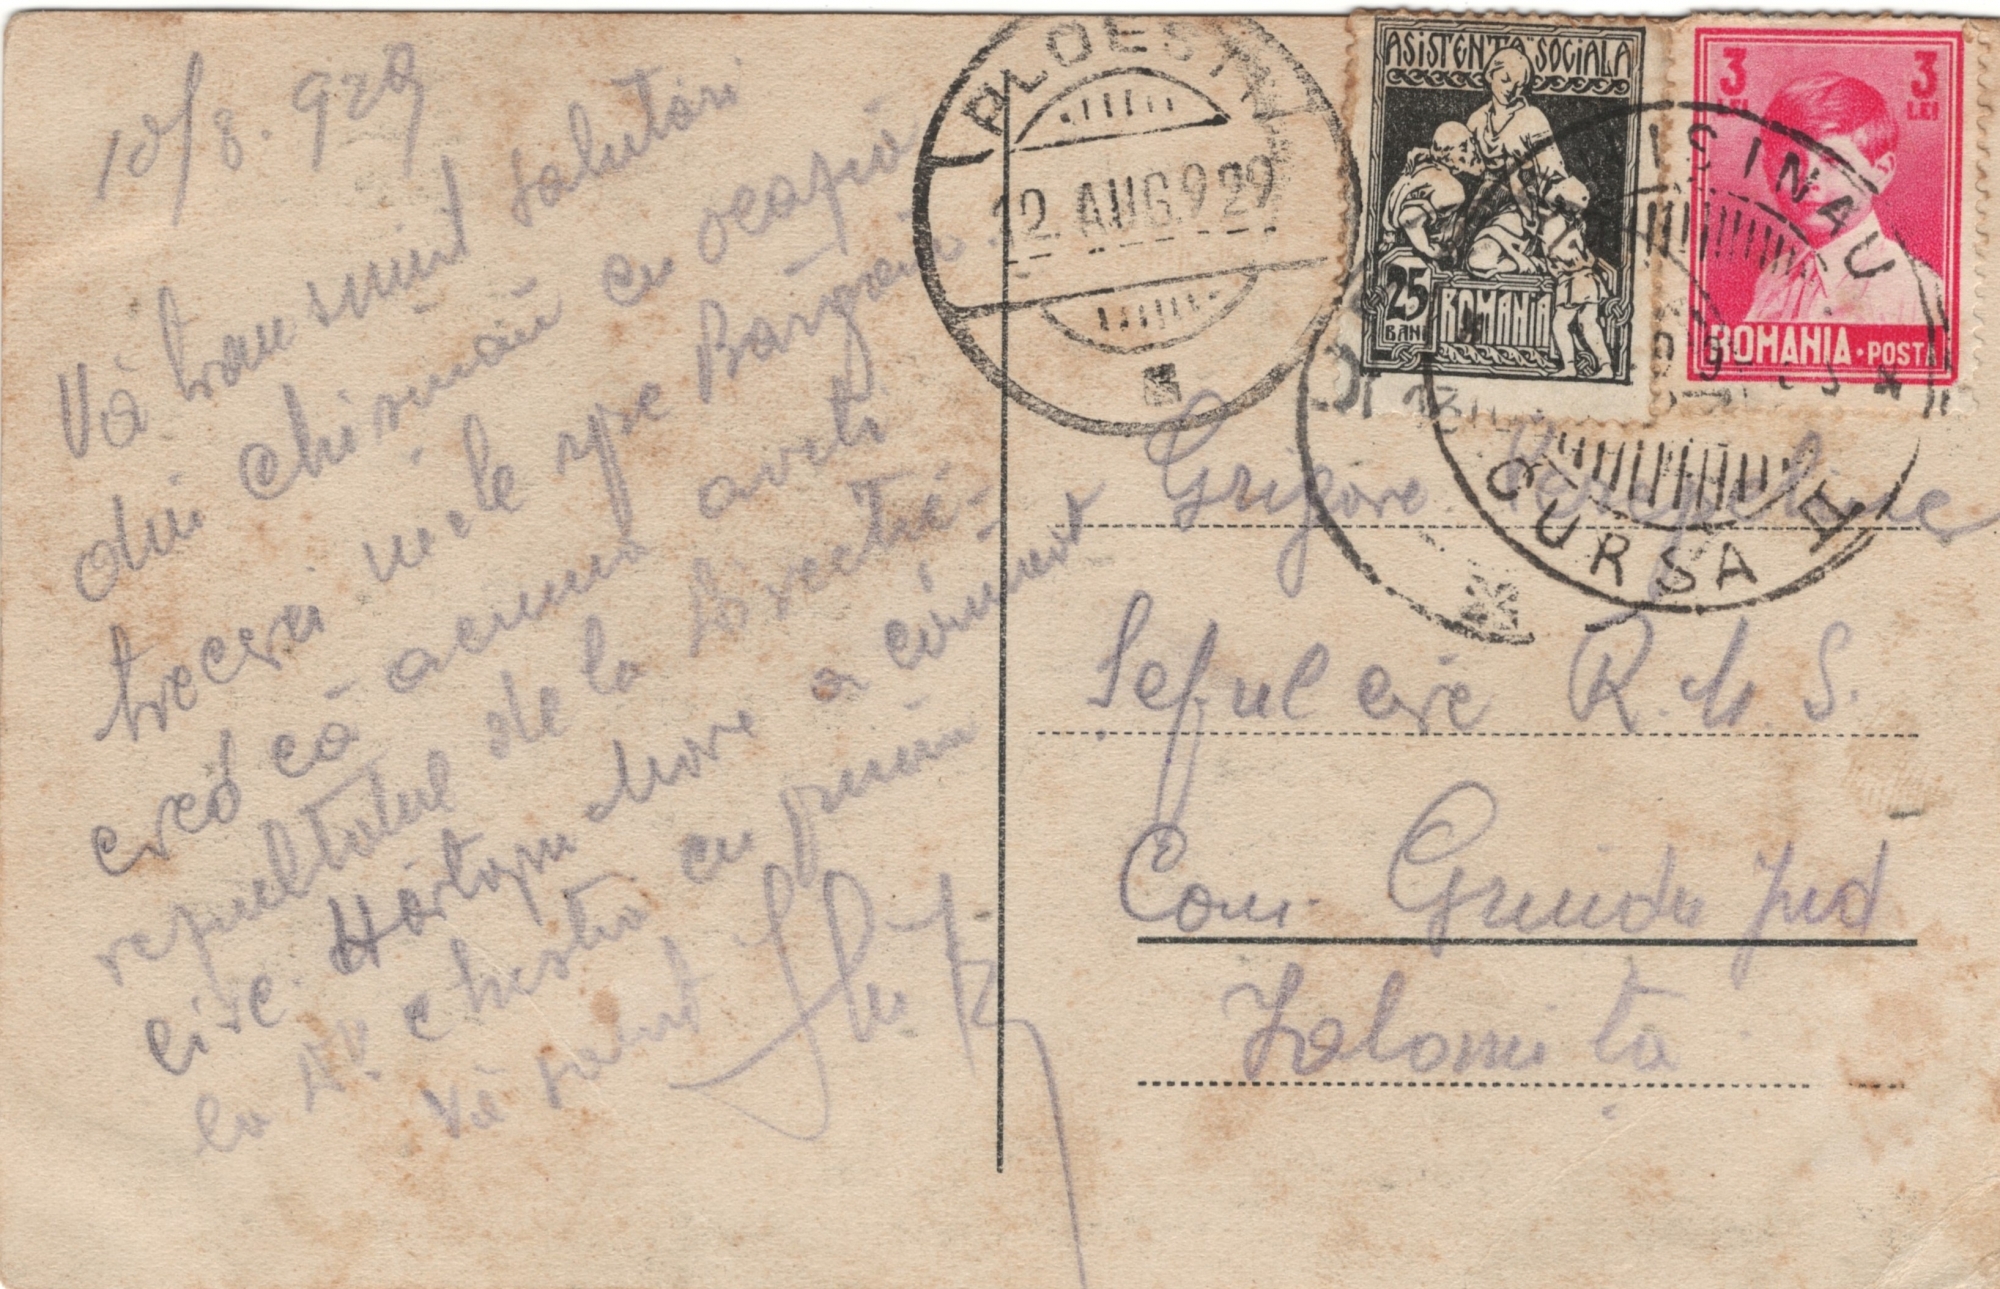 10/8. 929
Vă transmit salutări
din Chisinău cu ocazia
trecerei mele spre
cred că acuma aveti
rezultatul de la Directie-
circ. Hârtopu Mare a comunicat
la Nr chestia cu
Vă salut
PLOESTI
12. AUG. 929
ASISTENTA SOCIALA
25
BANI
ROMANIA
3 LEI
3 LEI
ROMANIA • POSTA
ISINAU
CURSA II
Grigore
Seful circ R.M.S.
Com. Grindu Jud
Ialomita